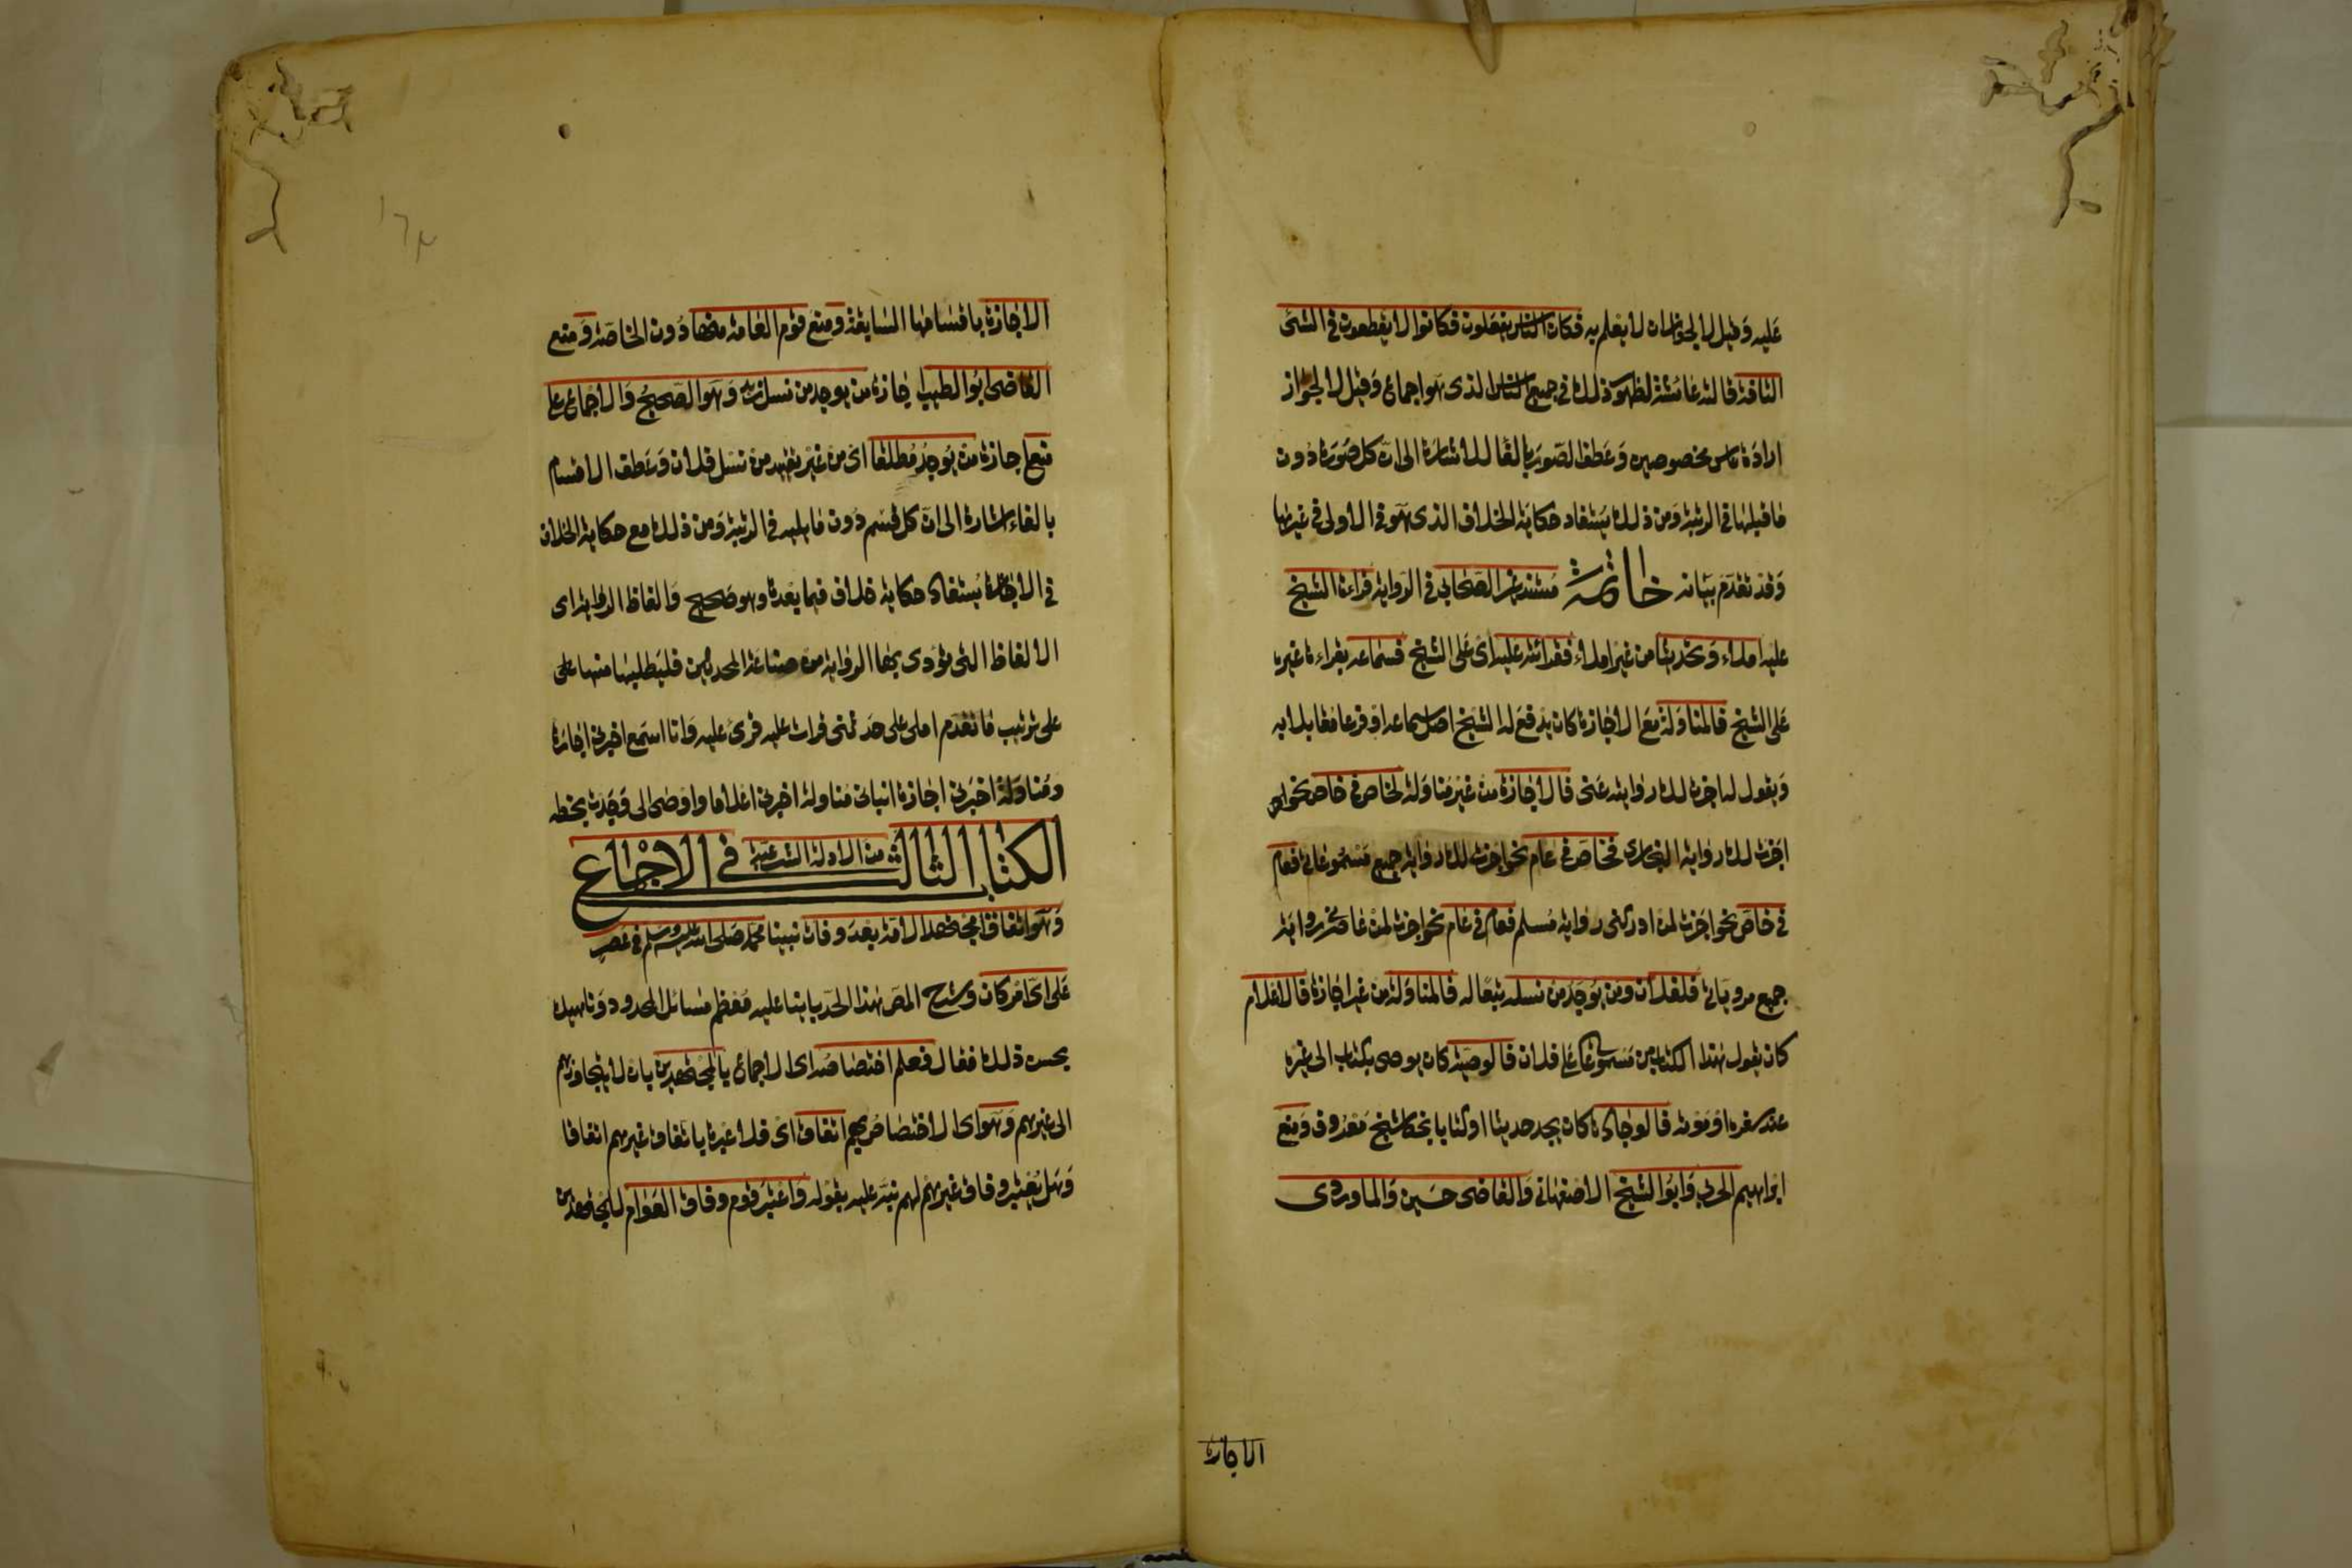 عليه وقيل لا لجواز ان لا يعلم به فكان الناس يفعلون فكانوا لا يقطعون في الشئ
التافه قالته عائشة لظهور ذلك في جميع الناس الذى هو اجماع وقيل لا لجواز
ارادة ناس مخصوصين وعطف الصورة بالفا للاشارة الى ان كل صورة دون
ما قبلها في الرتبة ومن ذلك يستفاد حكاية الخلاف الذى هو في الاولى في غيرها
وقد تقدم بيانه خاتمة مستند غير الصحابي في الرواية قراءة الشيخ
عليه املاء وتحديثا من غير املاء فقرائته عليه اى على الشيخ فسماعه بقراءة غيره
على الشيخ فالمناولة مع الاجازة كان يدفع له الشيخ اصل سماعه او فرعا مقابلا به
ويقول له اجزت لك روايته عنى فالاجازة من غير مناولة لخاص في خاص نحو
اجزت لك رواية البخارى فخاص في عام نحو اجزت لك رواية جميع مسموعاتي فعام
في خاص نحو اجزت لمن ادركنى رواية مسلم فعام في عام نحو اجزت لمن عاصرنى رواية
جميع مروياتي فلفلان ومن يوجد من نسله تبعا له فالمناولة من غير اجازة فالاعلام
كان يقول هذا الكتاب من مسموعاتي على فلان فالوصية كان يوصى بكتاب الى غيره
عند سفره او موته فالوجادة كان يجد حديثا او كتابا بخط شيخ معروف ومنع
ابراهيم الحربي وابو الشيخ الاصفهاني والقاضى حسين والماوردى
الاجازة
الاجازة باقسامها السابقة ومنع قوم العامة منها دون الخاصة ومنع
القاضى ابو الطيب اجازة من يوجد من نسل زيد وهو الصحيح والاجماع على
منع اجازة من يوجد مطلقا اى من غير تقييد من نسل فلان وعطف الاقسام
بالفاء اشارة الى ان كل قسم دون ما يليه في الرتبة ومن ذلك مع حكاية الخلاف
في الاجازة يستفاد حكاية خلاف فيما بعدها وهو صحيح والفاظ الرواية اى
الالفاظ التى تؤدى بها الرواية من صناعة المحدثين فليطلبها منها على
على ترتيب ما تقدم املى على حدثنى قرات عليه قرئ عليه وانا اسمع اخبرني اجازة
ومناولة اخبرني اجازة انباني مناولة اخبرني اعلاما واوصى الى وجدت بخطه
الكتاب الثالث من الادلة الشرعية في الاجماع
وهو اتفاق مجتهد الامة بعد وفات نبينا محمد صلى الله عليه وسلم في عصر
على اى امر كان وشرح المص هذا الحد بابنا عليه معظم مسائل المحدود وناهيك
بحسن ذلك فقال فعلم اختصاصه اى الاجماع بالمجتهدين بان لا يتجاوزهم
الى غيرهم وهو اى الاختصاص بهم اتفاق اى فلا عبرة باتفاق غيرهم اتفاقا
وهل يعتبر وفاق غيرهم لهم نبه عليه بقوله واعتبر قوم وفاق العوام للمجتهدين